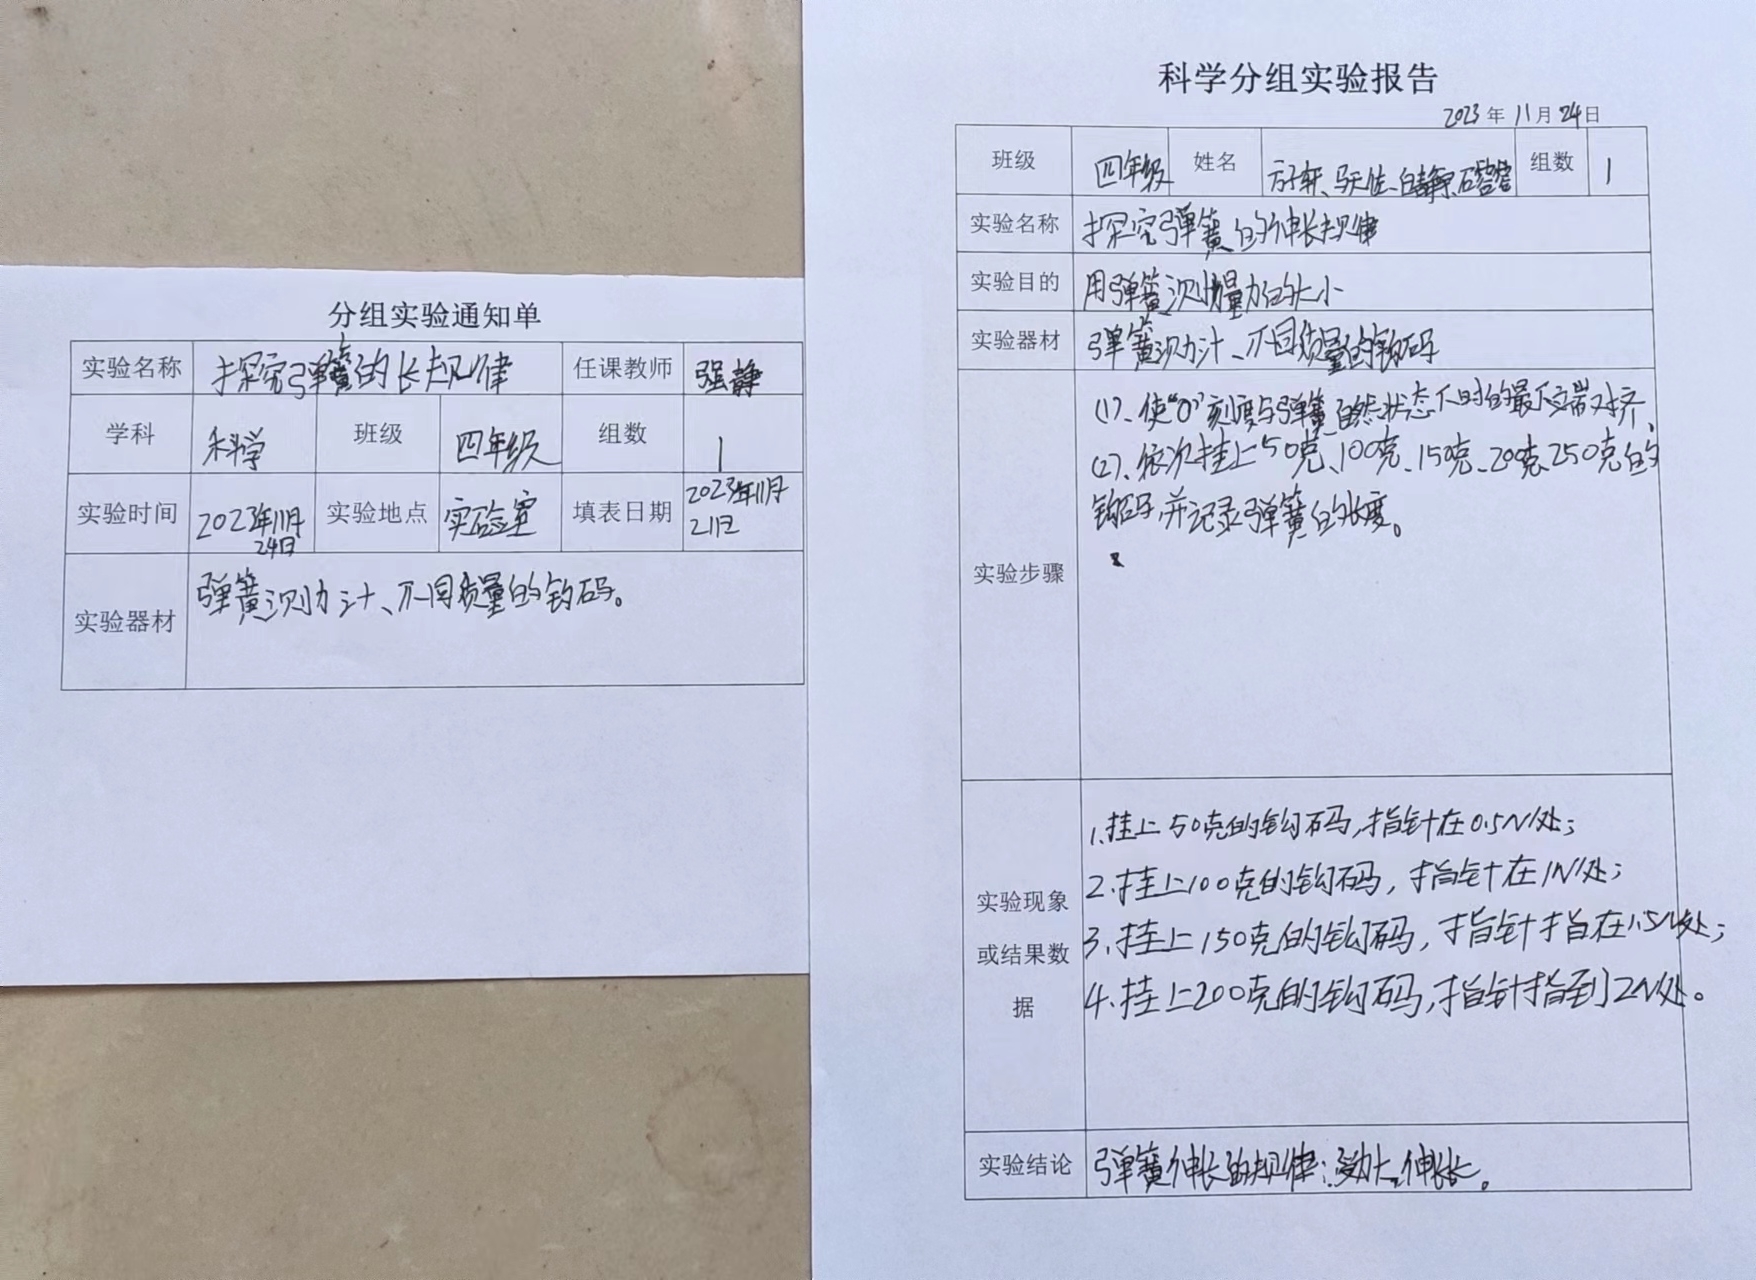 分组实验通知单
实验名称 探究弹簧的长规律 任课教师 强静
学科 科学 班级 四年级 组数 1
实验时间 2023年11月24日 实验地点 实验室 填表日期 2023年11月21日
实验器材 弹簧测力计、不同质量的钩码。
科学分组实验报告
2023年11月24日
班级 四年级 姓名 组数 1
实验名称 探究弹簧的伸长规律
实验目的 用弹簧测量力的大小
实验器材 弹簧测力计、不同质量的钩码
实验步骤
(1)、使“0”刻度与弹簧自然状态下时的最下端对齐、
(2)、依次挂上50克、100克、150克、200克、250克的
钩码,并记录弹簧的长度。
实验现象
或结果数
据
1.挂上50克的钩码,指针在0.5N处;
2.挂上100克的钩码,指针在1N处;
3.挂上150克的钩码,指针指在1.5N处;
4.挂上200克的钩码,指针指到2N处。
实验结论 弹簧伸长的规律:受力大,伸长长。